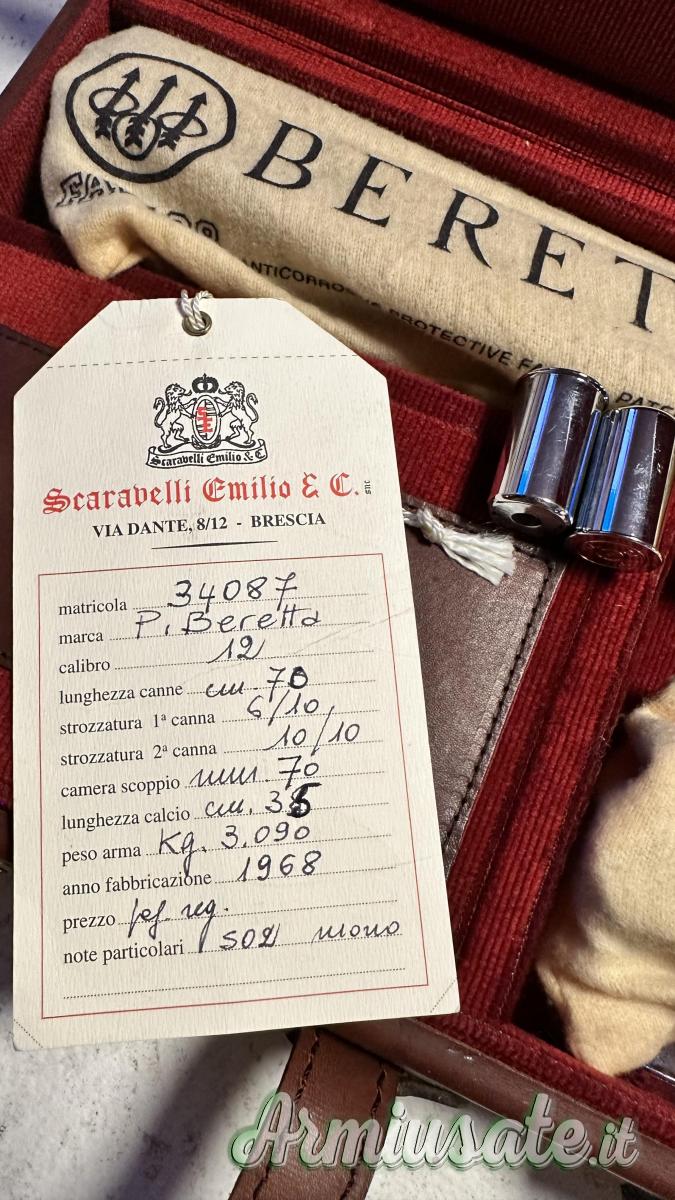 BERET
ANTICORROSIVE PROTECTIVE FA
PATE
SE
Scaravelli Emilio & C.
Scaravelli Emilio & C. snc
VIA DANTE, 8/12 - BRESCIA
matricola 34087
marca P. Beretta
calibro 12
lunghezza canne cm. 70
strozzatura 1ª canna 6/10
strozzatura 2ª canna 10/10
camera scoppio mm. 70
lunghezza calcio cm. 36
peso arma Kg. 3.090
anno fabbricazione 1968
prezzo reg.
note particolari SO2 mono
Armiusate.it